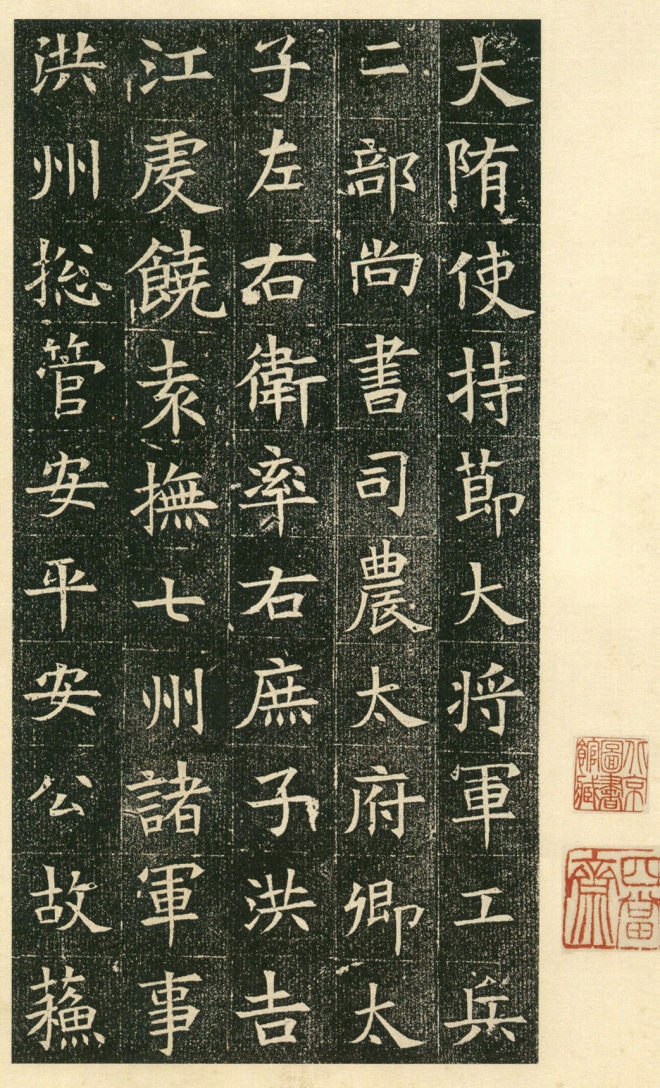 大陏使持莭大将軍工兵
二部尚書司農太府卿太
子左右衛率右庶子洪吉
江虔饒袁撫七州諸軍事
洪州揔管安平安公故蘓
北京圖書館藏
四當齋